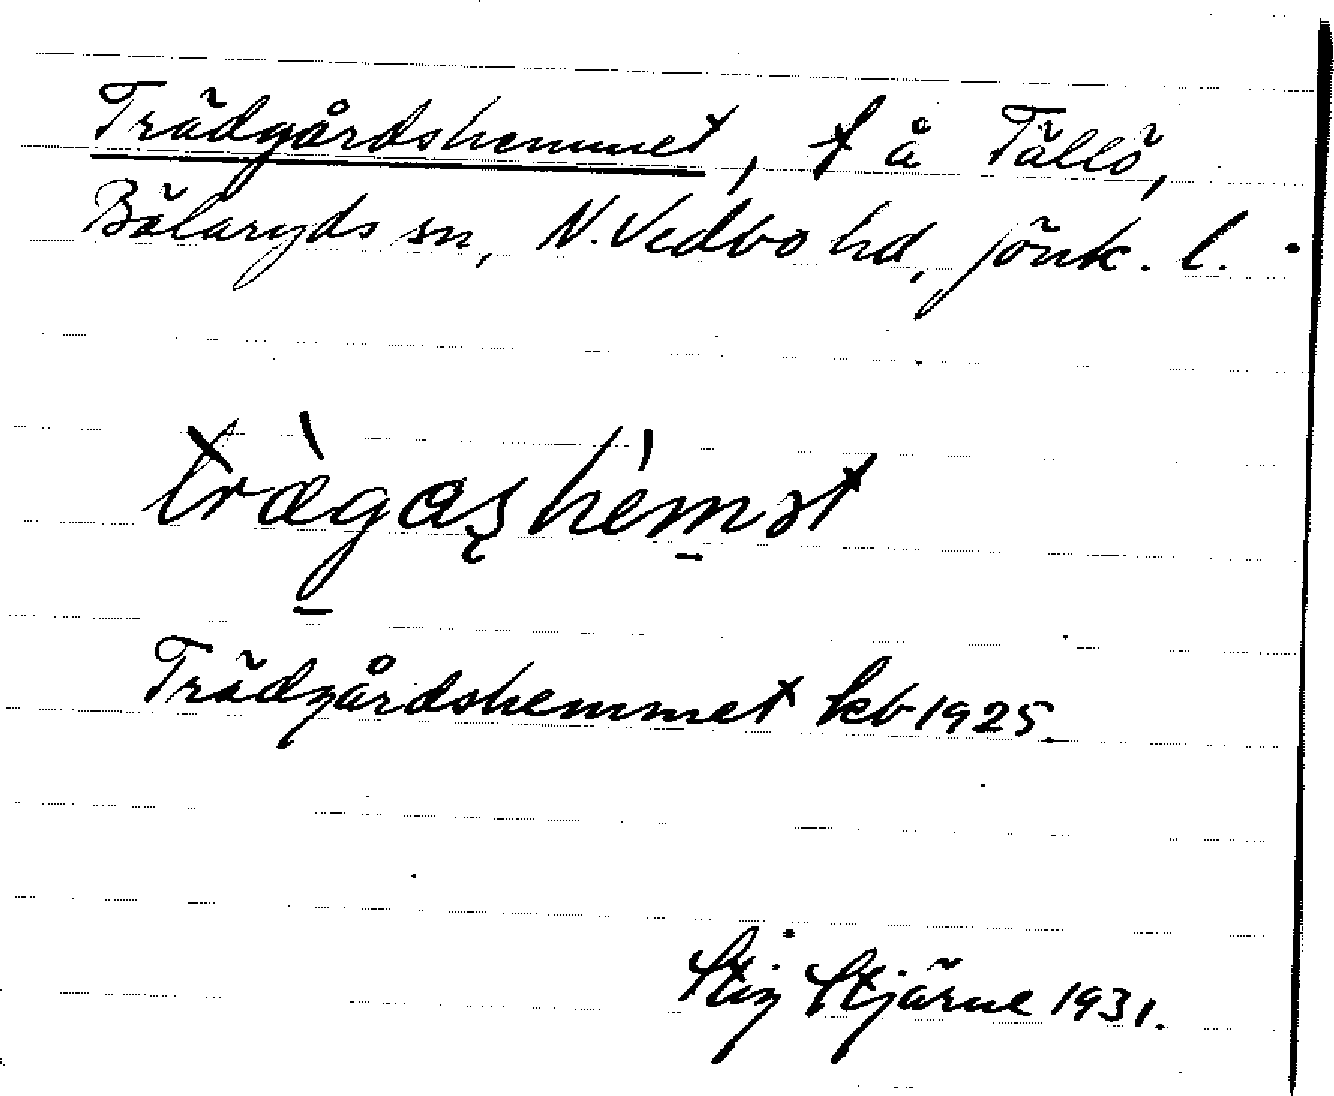 Trädgårdshemmet, t å Tällö,
Bälaryds sn, N. Vedbo hd, Jönk. l.
trǽgas̨hèmət
Trädgårdshemmet kb 1925.
Stig Stjärne 1931.